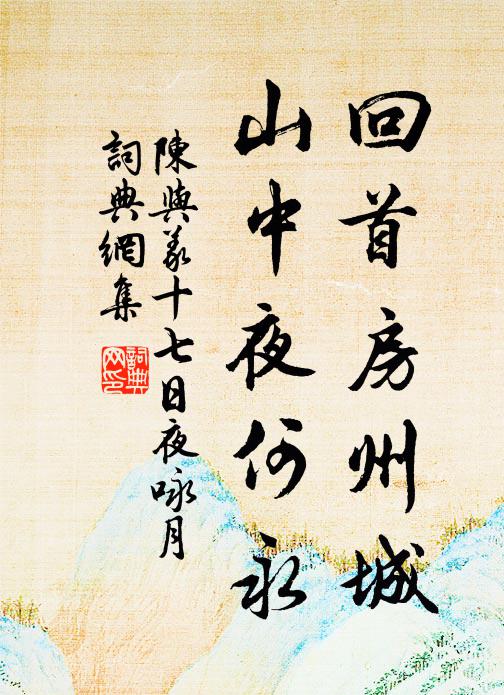 回首房州城
山中夜何永
陳與義十七日夜咏月
詞典網集
詞典
网印